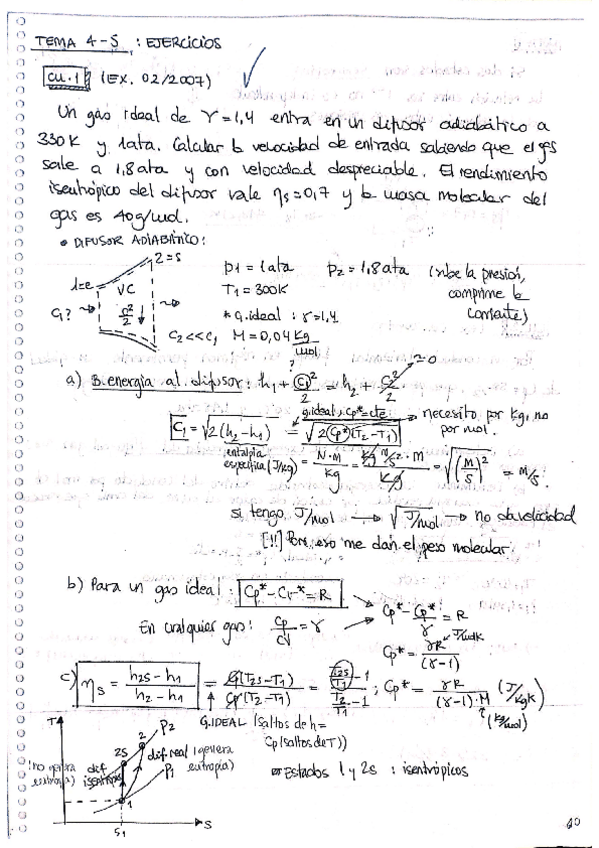 TEMA 4-5 : EJERCICIOS
CU.1 (EX. 02/2007)
Un gas ideal de γ=1,4 entra en un difusor adiabático a
330K y 1ata. Calcular la velocidad de entrada sabiendo que el gas
sale a 1,8ata y con velocidad despreciable. El rendimiento
isentrópico del difusor vale ηs=0,7 y la masa molecular del
gas es 40g/mol.
• DIFUSOR ADIABÁTICO:
2=s
1=e
VC
C1?
c²/2 ↓
C2<<C1
P1 = 1ata P2 = 1,8ata (sube la presión,
T1 = 300K comprime la
* g.ideal : γ=1,4 corriente)
M = 0,04 Kg/mol
a) B.energía al difusor: h1 + C1²/2 = h2 + C2²/2 ≈0
?
g.ideal, Cp*=cte → necesito por kg, no
C1 = √2(h2-h1) = √2Cp*(T2-T1) por mol.
entalpía
específica (J/kg) N·M/Kg = Kg M/s²·M/Kg = √(M/s)² = M/s
si tengo J/mol → √J/mol → no da velocidad
[!!] Por eso me dan el peso molecular.
b) Para un gas ideal: Cp* - Cv* = R
Cp* - Cp*/γ = R
En cualquier gas: Cp/Cv = γ
J/molK
Cp* = γR/(γ-1)
c) ηs = h2s - h1/h2 - h1 = Cp(T2s-T1)/Cp(T2-T1) = T2s/T1 -1/T2/T1 -1 ; Cp* = γR/(γ-1)·M (J/KgK)
(kg/mol)
G.IDEAL (saltos de h =
Cp(saltos de T))
T
2
P2
2s
dif.real (genera
entropía)
(no genera
entropía)
dif
isentrópico
P1
1
Estados 1 y 2s : isentrópicos
S1
S
60